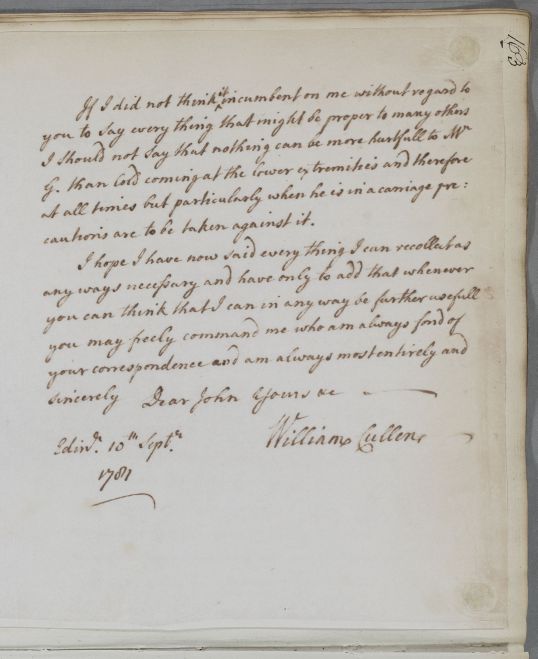 163
If I did not think it incumbent on me without regard to
you to say every thing that might be proper to many others
I should not say that nothing can be more hurtfull to Mr
G. than Cold coming at the lower extremities and therefore
at all times but particularly when he is in a carriage pre:
cautions are to be taken against it.
I hope I have now said every thing I can recollect as
any ways necessary and have only to add that whenever
you can think that I can in any way be further usefull
you may freely command me who am always fond of
your correspondence and am always most entirely and
sincerely Dear John Yours &c
Edinr. 10th Septr. William Cullen
1781